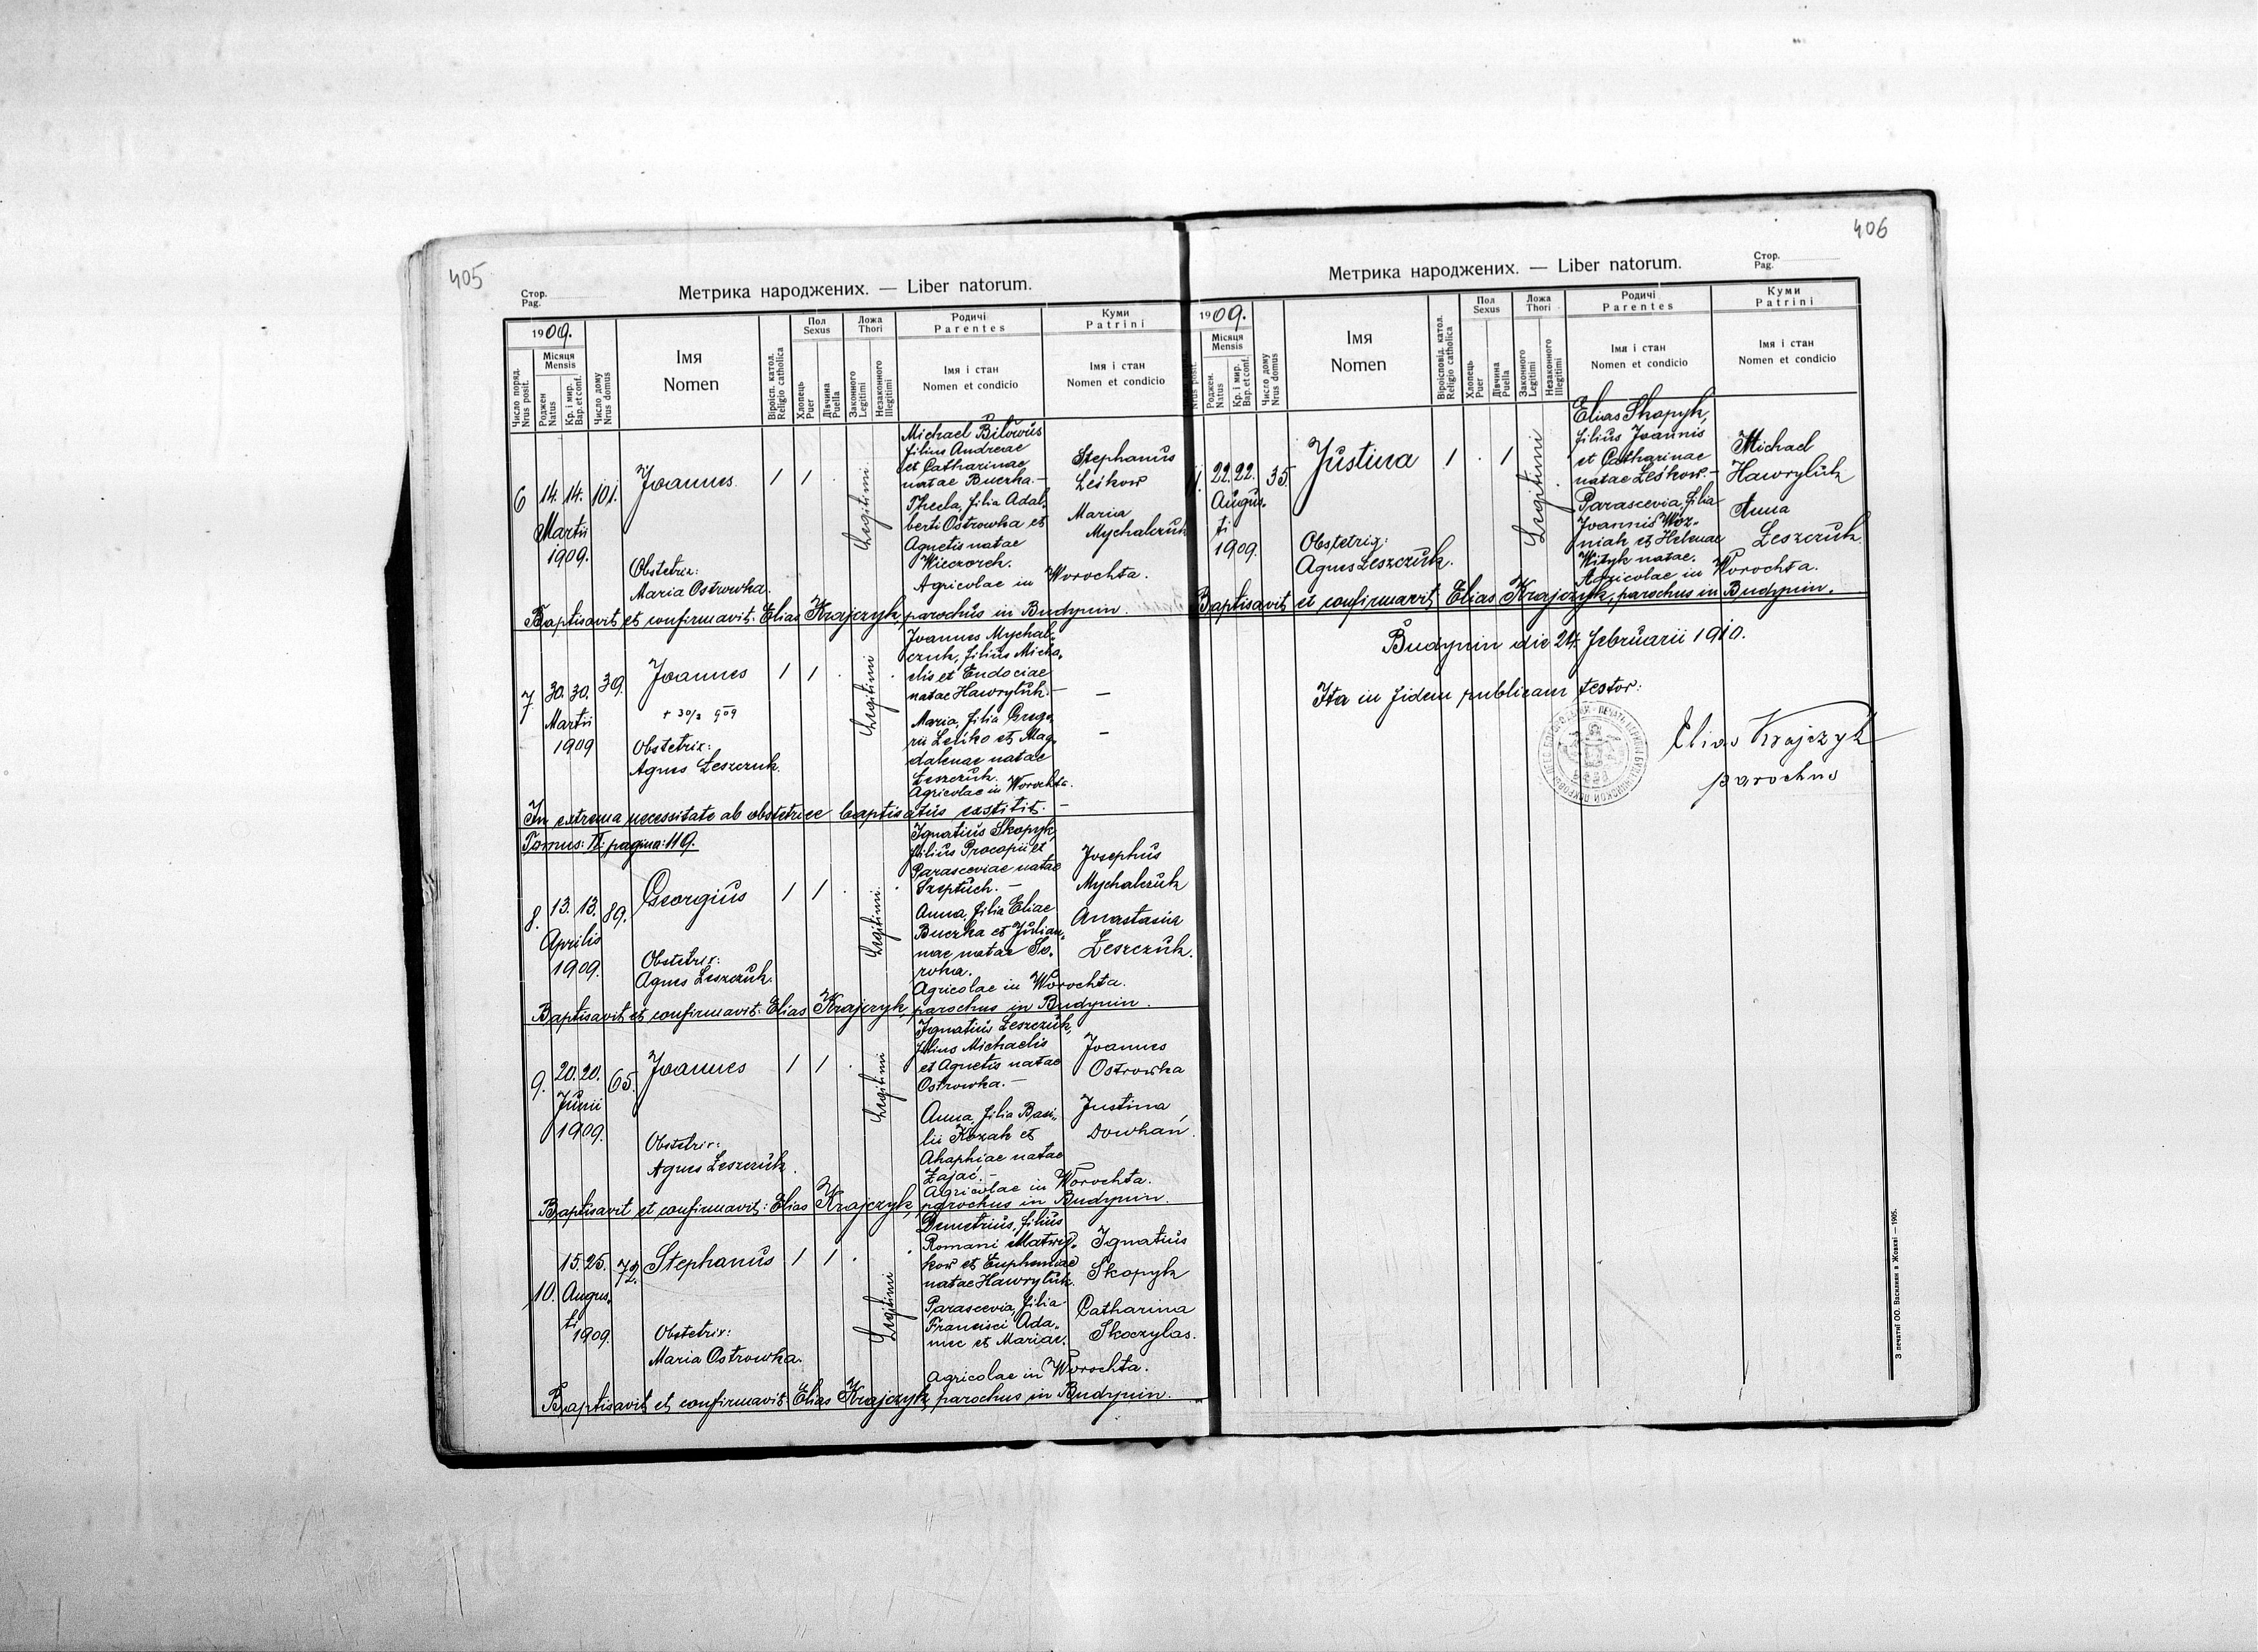 405
Стор.
Pag.
Метрика народжених. — Liber natorum.
1909.
Число поряд.
Nrus posit.
Місяця
Mensis
Роджен
Natus
Кр. і мир.
Bap. et conf.
Число дому
Nrus domus
Імя
Nomen
Віроісп. катол.
Religio catholica
Пол
Sexus
Хлопець
Puer
Дівчина
Puella
Ложа
Thori
Законного
Legitimi
Незаконного
Illegitimi
Родичі
Parentes
Імя і стан
Nomen et condicio
Куми
Patrini
Імя і стан
Nomen et condicio
6 14. 14. 101.
Martii
1909.
Joannes
1 1 .
Legitimi
Obstetrix:
Maria Ostrowka.
Michael Bilowus
filius Andreae
et Catharinae
natae Buczka.—
Thecla, filia Adal-
berti Ostrowka et
Agnetis natae
Wieczorek.
Agricolae in Worochta.
Stephanus
Leśkow
Maria
Mychalczuk
Baptisavit et confirmavit: Elias Krajczyk, parochus in Budynin.
7 30. 30. 39.
Martii
1909
Joannes
+ 30/3 909
1 1 .
Legitimi
Obstetrix:
Agnes Leszczuk.
Joannes Mychal-
czuk, filius Micha-
elis et Eudociae
natae Hawryluk.—
Maria, filia Grego-
rii Leśko et Mag-
dalenae natae
Leszczuk.
Agricolae in Worochta.
—
—
In extrema necessitate ab obstetrice baptisatus exstitit.—
Tomus: II: pagina: 119.
8. 13. 13. 89.
Aprilis
1909.
Georgius
1 1 .
Legitimi.
Obstetrix:
Agnes Leszczuk.
Ignatius Skopyk,
filius Procopii et
Parasceviae natae
Szeptuch.—
Anna, filia Eliae
Buczka et Julian-
nae natae So-
roka.
Agricolae in Worochta.
Josephus
Mychalczuk
Anastasia
Leszczuk.
Baptisavit et confirmavit: Elias Krajczyk, parochus in Budynin.
9. 20. 20. 65.
Junii
1909.
Joannes
1 1 .
Legitimi
Obstetrix:
Agnes Leszczuk.
Ignatius Leszczuk,
filius Michaelis
et Agnetis natae
Ostrowka.—
Anna, filia Basi-
lii Kozak et
Ahaphiae natae
Zając.—
Agricolae in Worochta.
Joannes
Ostrowka
Justina
Dowhań.
Baptisavit et confirmavit: Elias Krajczyk, parochus in Budynin.
10. 15. 25. 72.
Augus-
ti
1909.
Stephanus
1 1 .
Legitimi
Obstetrix:
Maria Ostrowka.
Demetrius, filius
Romani Matwij-
kow et Euphemiae
natae Hawryluk.
Parascevia, filia
Francisci Ada-
mec et Mariae.
Agricolae in Worochta.
Ignatius
Skopyk
Catharina
Skoczylas.
Baptisavit et confirmavit: Elias Krajczyk, parochus in Budynin.
406
Стор.
Pag.
Метрика народжених. — Liber natorum.
1909.
Nrus posit.
Місяця
Mensis
Роджен.
Natus
Кр. і мир.
Bap. et conf.
Число дому
Nrus domus
Імя
Nomen
Віроісповід. катол.
Religio catholica
Пол
Sexus
Хлопець
Puer
Дівчина
Puella
Ложа
Thori
Законного
Legitimi
Незаконного
Illegitimi
Родичі
Parentes
Імя і стан
Nomen et condicio
Куми
Patrini
Імя і стан
Nomen et condicio
11. 22. 22. 35.
Augus-
ti
1909.
Justina
1 . 1
Legitimi
Obstetrix:
Agnes Leszczuk.
Elias Skopyk,
filius Joannis
et Catharinae
natae Leśkow.—
Parascevia, filia
Joannis Woz-
niak et Helenae
Wityk natae.
Agricolae in Worochta.
Michael
Hawryluk
Anna
Leszczuk.
Baptisavit et confirmavit Elias Krajczyk, parochus in Budynin.
Budynin die 24. februarii 1910.
Ita in fidem publicam testor:
Elias Krajczyk
parochus
З печатнї ОО. Василиян в Жовкві — 1905.